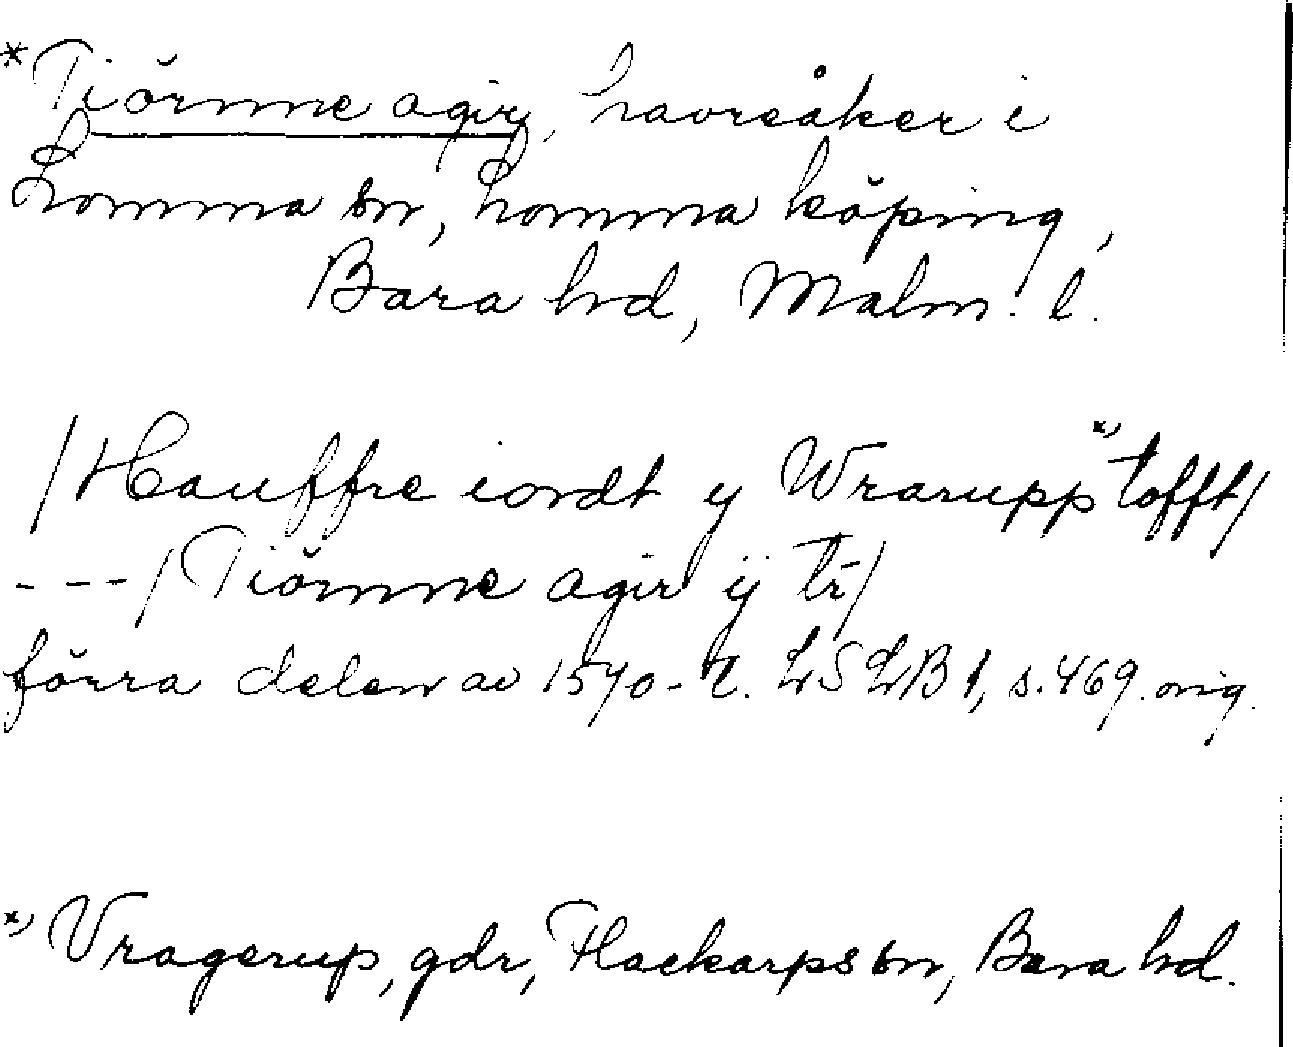 *Tiörnne agir, havreåker i
Lomma sn, Lomma köping,
Bara hd, Malm. l.
/Hauffre iordt y Wrarupp *) tofft/
---/Tiörnne agir ÿ tr/
förra delen av 1570-t. LSLB 1, s. 469. orig.
*) Vragerup, gdr, Flackarps sn, Bara hd.